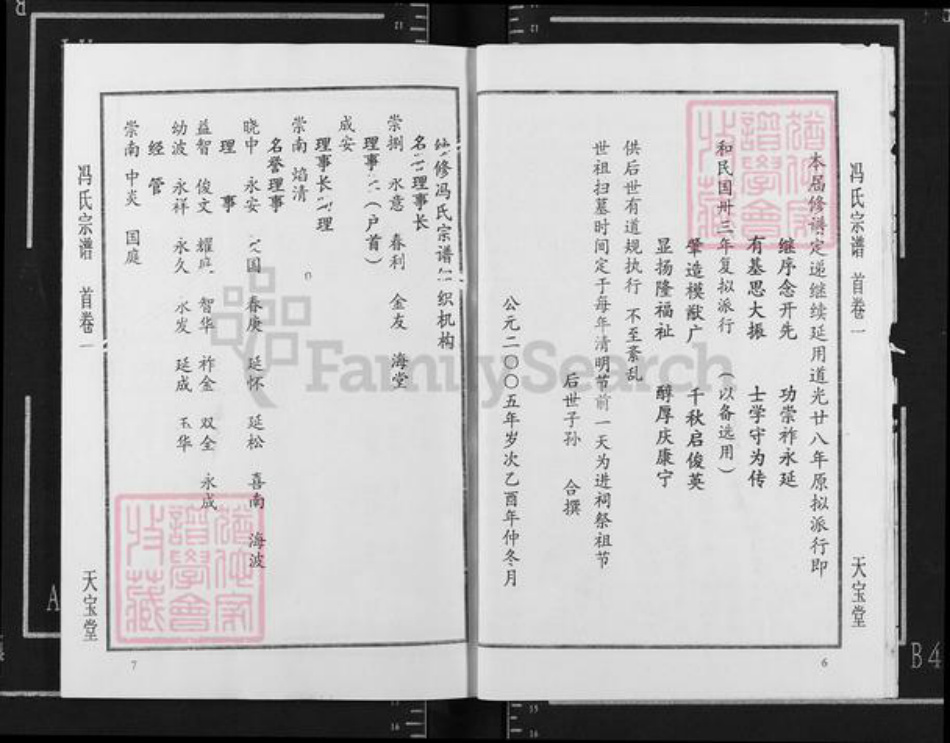 冯氏宗谱 首卷一 天宝堂
本届修谱定递继续延用道光廿八年原拟派行即
继序念开先 功崇祚永延
有基思大振 士学守为传
和民国卅三年复拟派行 (以备选用)
肇造模猷广 千秋启俊英
显扬隆福祉 醇厚庆康宁
供后世有道规执行 不至紊乱
世祖扫墓时间定于每年清明节前一天为进祠祭祖节
后世子孙 合撰
公元二〇〇五年岁次乙酉年仲冬月
6
修冯氏宗谱 织机构
名 理事长
崇捌 永意 春利 金友 海堂
理事 (户首)
成安
理事长 理
崇南 焰清
名誉理事
晓中 永安 国 春庚 延怀 延松 喜南 海波
理 事
益智 俊文 耀庭 智华 祚金 双全 永成
幼波 永祥 永久 水发 延成 玉华
经 管
崇南 中炎 国庭
冯氏宗谱 首卷一 天宝堂
7
FamilySearch
B4
A
15
16
16